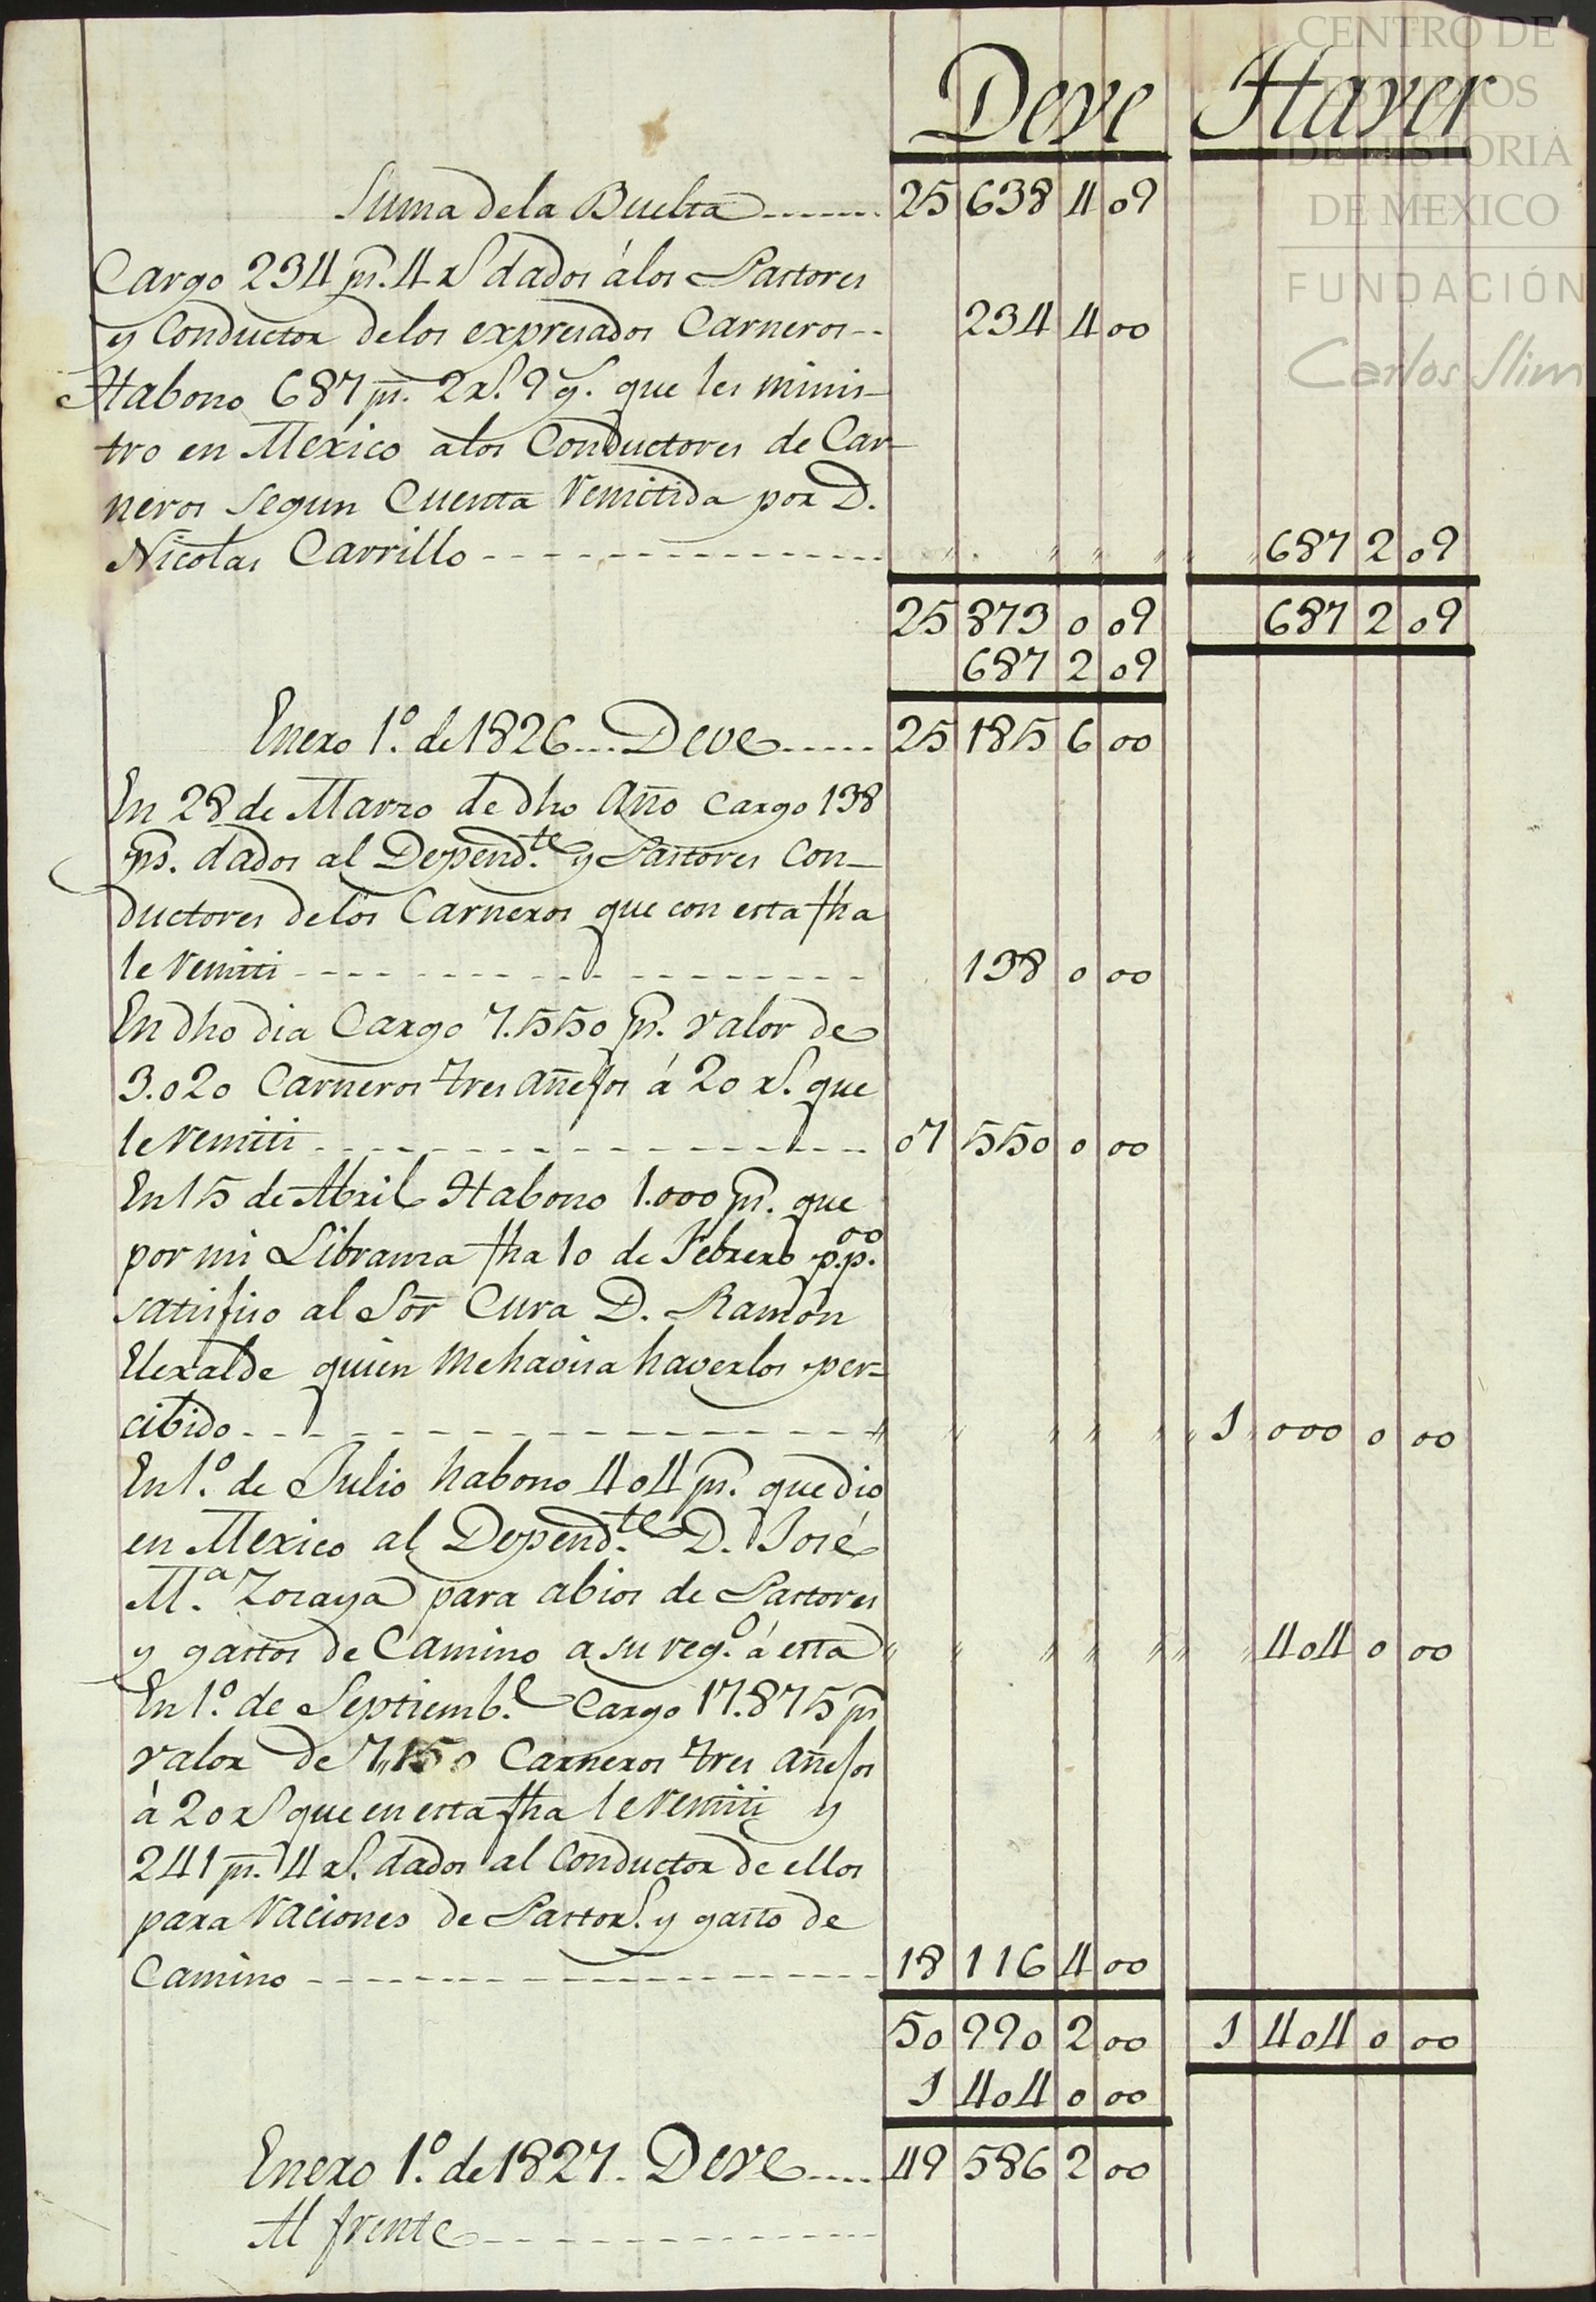 CENTRO DE
ESTUDIOS
DE HISTORIA
DE MEXICO
FUNDACIÓN
Carlos Slim
Deve Haver
Suma dela Buelta 25 638 4 09
Cargo 234 ps. 4 rs dados álos Pastores
y Conductor delos expresados Carneros 234 4 00
Habono 687 ps. 2 rs. 9 gs. que les minis-
tro en Mexico alos Conductores de Car-
neros segun Cuenta remitida por D.
Nicolas Carrillo 687 2 09
25 873 0 09 687 2 09
687 2 09
Enero 1.º de 1826 Deve 25 185 6 00
En 28 de Marzo de dho Año Cargo 138
ps. dados al Depend.te y Pastores Con-
ductores delos Carneros que con esta fha
le remiti 138 0 00
En dho dia Cargo 7.550 ps. valor de
3.020 Carneros tres añejos á 20 rs. que
le remiti 07 550 0 00
En 15 de Abril Habono 1.000 ps. que
por mi Libranza fha 10 de Febrero p.º p.º
satisfiso al Sor Cura D. Ramon
Elexalde quien mehavisa haverlos per=
cibido 1 000 0 00
En 1.º de Julio habono 404 ps. que dio
en Mexico al Depend.te D. José
M.a Zosaya para abios de Pastores
y gastos de Camino a su reg.º á esta 404 0 00
En 1.º de Septiemb.e Cargo 17.875 ps
valor de 7,,150 Carneros tres añejos
á 20 rs que en esta fha le remiti y
241 ps. 4 rs. dados al Conductor de ellos
para raciones de Pastors. y gasto de
Camino 18 116 4 00
50 990 2 00 1 404 0 00
1 404 0 00
Enero 1.º de 1827. Deve 49 586 2 00
Al frente